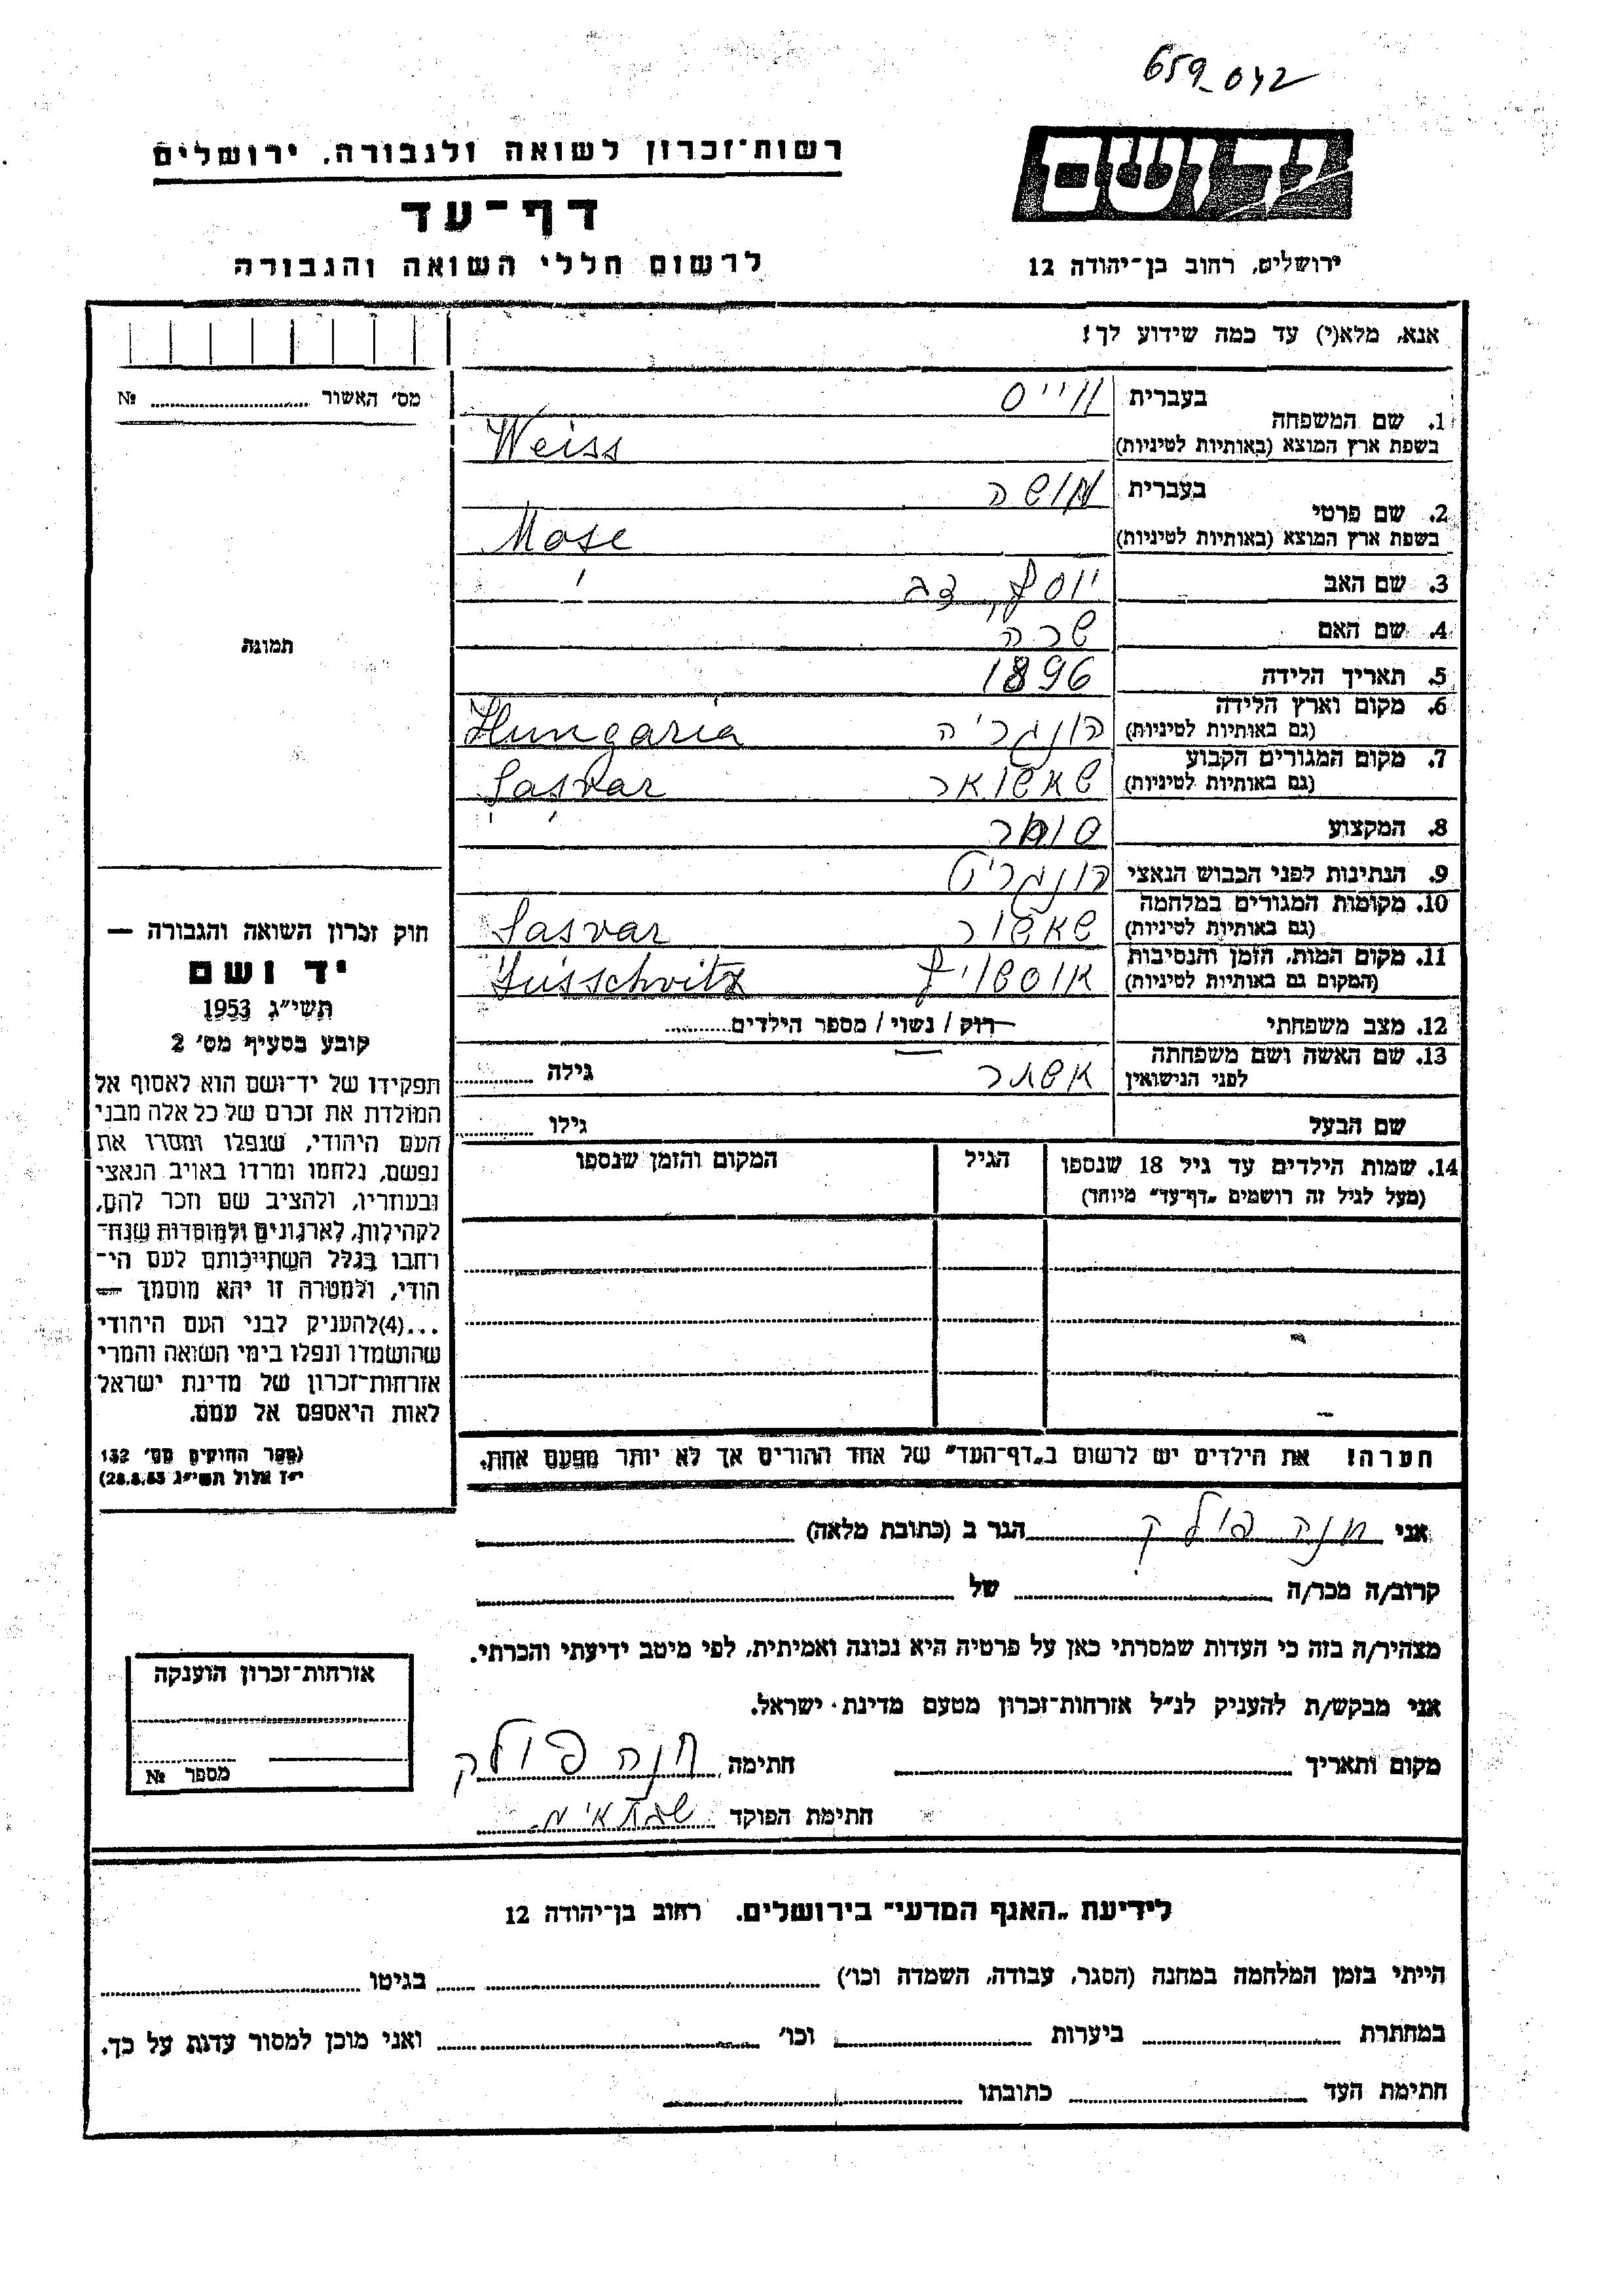 659_042
יד ושם
ירושלים, רחוב בן־יהודה 12
רשות־זכרון לשואה ולגבורה, ירושלים
דף־עד
לרשום חללי השואה והגבורה
אנא, מלא(י) עד כמה שידוע לך!
מס׳ האשור № ........
1. שם המשפחה
בעברית ווייס
בשפת ארץ המוצא (באותיות לטיניות) Weiss
2. שם פרטי
בעברית מושה
בשפת ארץ המוצא (באותיות לטיניות) Mose
3. שם האב יוסף, דב
4. שם האם שרה
5. תאריך הלידה 1896
6. מקום וארץ הלידה
(גם באותיות לטיניות) הונגריה Hungaria
7. מקום המגורים הקבוע
(גם באותיות לטיניות) שאשואר Sasvar
8. המקצוע סוחר
9. הנתינות לפני הכבוש הנאצי
10. מקומות המגורים במלחמה
(גם באותיות לטיניות) שאשור Sasvar
11. מקום המות, הזמן והנסיבות
(המקום גם באותיות לטיניות)
12. מצב משפחתי רוק / נשוי / מספר הילדים........
13. שם האשה ושם משפחתה
לפני הנישואין אשתר גילה ........
שם הבעל גילו ........
14. שמות הילדים עד גיל 18 שנספו הגיל המקום והזמן שנספו
(מעל לגיל זה רושמים „דף־עד״ מיוחד)
הערה! את הילדים יש לרשום ב„דף־העד״ של אחד ההורים אך לא יותר מפעם אחת.
תמונה
חוק זכרון השואה והגבורה —
יד ושם
תשי״ג 1953
קובע בסעיף מס׳ 2
תפקידו של יד־ושם הוא לאסוף אל
המולדת את זכרם של כל אלה מבני
העם היהודי, שנפלו ומסרו את
נפשם, נלחמו ומרדו באויב הנאצי
ובעוזריו, ולהציב שם וזכר להם,
לקהילות, לארגונים ולמוסדות שנח־
רחבו בגלל השתייכותם לעם הי־
הודי, ולמטרה זו יהא מוסמך —
...(4)להעניק לבני העם היהודי
שהושמדו ונפלו בימי השואה והמרי
אזרחות־זכרון של מדינת ישראל
לאות היאספם אל עמם.
(ספר החוקים מס׳ 132
י״ז אלול תשי״ג 28.8.53)
אני חנה פולק הגר ב (כתובת מלאה)
קרוב/ה מכר/ה ........ של ........
מצהיר/ה בזה כי העדות שמסרתי כאן על פרטיה היא נכונה ואמיתית, לפי מיטב ידיעתי והכרתי.
אני מבקש/ת להעניק לנ״ל אזרחות־זכרון מטעם מדינת ישראל.
מקום ותאריך ........ חתימה חנה פולק
חתימת הפוקד
אזרחות־זכרון הוענקה
מספר №
לידיעת „האגף המדעי״ בירושלים. רחוב בן־יהודה 12
הייתי בזמן המלחמה במחנה (הסגר, עבודה, השמדה וכו׳) ........ בגיטו ........
במחתרת ........ ביערות ........ וכו׳ ........ ואני מוכן למסור עדות על כך.
חתימת העד ........ כתובתו ........